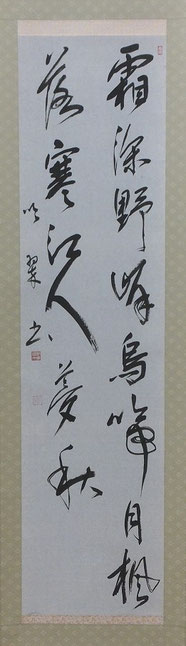 霜深野岸烏啼月楓
落寒江人夢秋
翠書